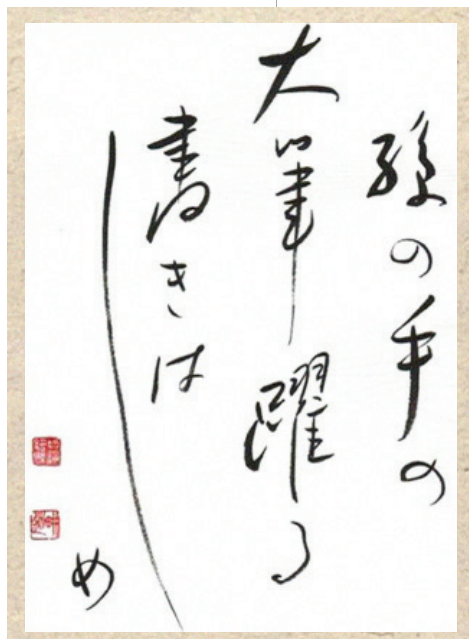 孫の手の
大筆躍る
書きは
じめ